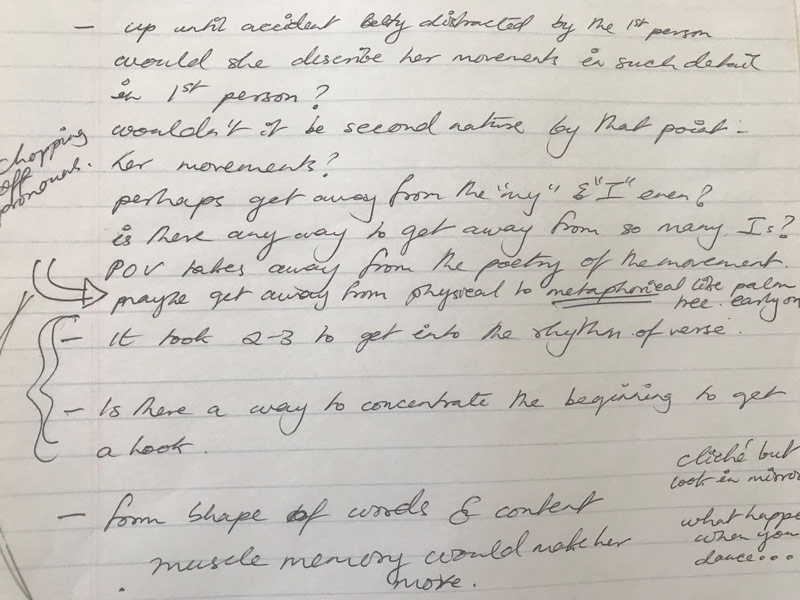 - up until accident Betty distracted by the 1st person
would she describe her movements in such detail
in 1st person?
wouldn't it be second nature by that point -
her movements?
chopping
off
pronouns.
perhaps get away from the "my" & "I" even?
is there any way to get away from so many Is?
POV takes away from the poetry of the movement.
maybe get away from physical to metaphorical like palm
tree. early on
- It took 2-3 to get into the rhythm of verse.
- Is there a way to concentrate the beginning to get
a hook.
cliché but
look in mirror
- form shape of words & content
muscle memory would make her
move.
what happe
when you
dance...